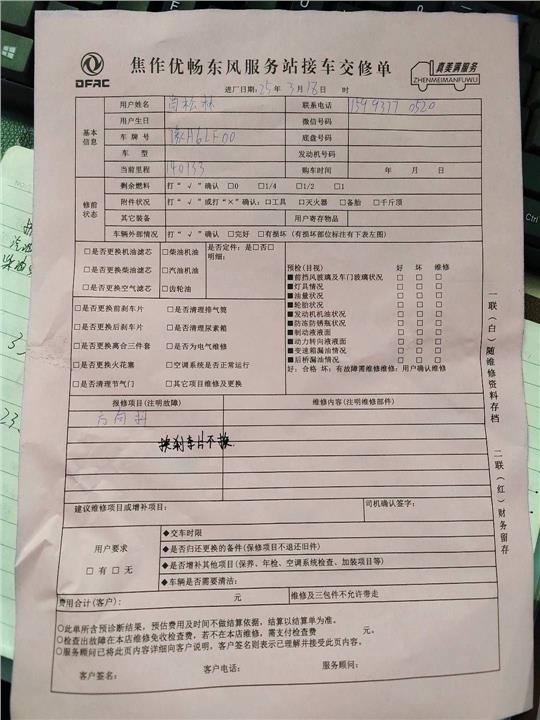 DFAC
焦作优畅东风服务站接车交修单
真美满服务
ZHENMEIMANFUWU
进厂日期:25年3月18日 时
用户姓名
联系电话 159 9377 0520
基本信息
用户生日
微信号码
车牌号 豫A6LF00
底盘号码
车 型
发动机号码
当前里程 140133
购车时间 年 月 日
修前状态
剩余燃料 打“√”确认 □0 □1/4 □1/2 □1
附件状况 打“√”或打“×”确认:□工具 □灭火器 □备胎 □千斤顶
其它装备
用户寄存物品
车辆外部情况 打“√”确认 □完好 □有损坏(有损部位标注有下表左图)
□是否更换机油滤芯 □柴油机油
是否定件:是□否□
明细:
□是否更换柴油滤芯 □汽油机油
□是否更换空气滤芯 □齿轮油
□是否更换前刹车片 □是否清理排气筒
□是否更换后刹车片 □是否清理尿素箱
□是否更换离合三件套 □是否为电气维修
□是否更换火花塞 □空调系统是否正常运行
□是否清理节气门 □其它项目维修及更换
预检(目视) 好 坏 维修
■前挡风玻璃及车门玻璃状况 □ □ □
■灯具情况 □ □ □
■油量状况 □ □ □
■轮胎状况 □ □ □
■发动机机油状况 □ □ □
■防冻防锈瓶状况 □ □ □
■制动液液面 □ □ □
■动力转向液液面 □ □ □
■变速箱漏油情况 □ □ □
■后桥漏油情况 □ □ □
好:合格 坏:有故障需维修维修:用户确认维修
报修项目(注明故障)
维修内容(注明维修部件)
方向机
换刹车片不换
建议维修项目或增补项目:
司机确认签字:
用户要求
□有□无
◆交车时限
◆是否归还更换的备件(保修项目不退还旧件)
◆是否增补其他项目(保养、年检、空调系统检查、加装项目等)
◆车辆是否需要清洁:
费用合计(客户): 元
维修及三包件不允许带走
○此单所含预诊断结果,预估费用及时间不做结算依据,结算以结算单为准。
○检查出故障在本店维修免收检查费,若不在本店维修,需支付检查费 元。
○服务顾问已将此页内容详细向客户说明,客户签名则表示已理解并接受此页内容。
客户签名: 客户电话: 服务顾问:
一联(白)随维修资料存档
二联(红)财务留存
Ctrl